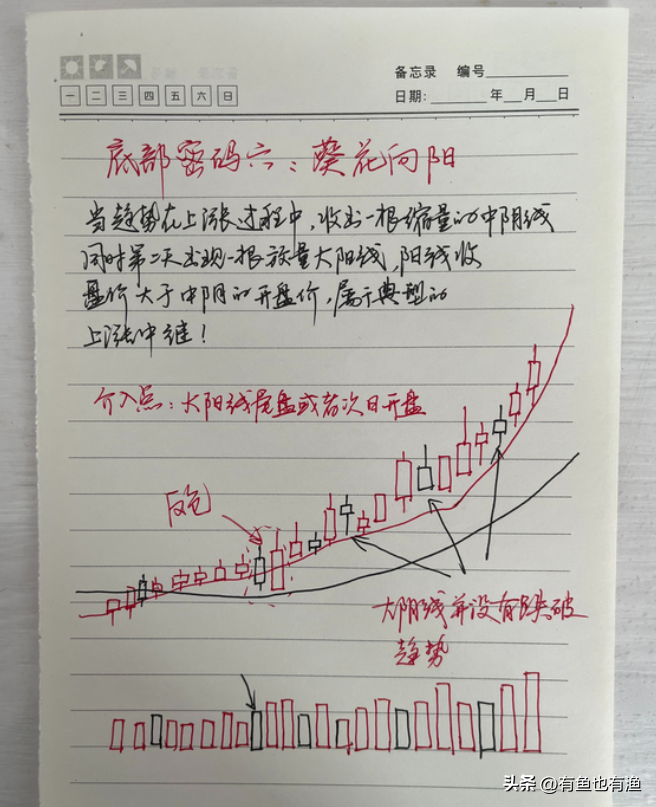 备忘录 编号
一 二 三 四 五 六 日
日期: 年 月 日
底部密码六：葵花向阳
当趋势在上涨过程中，收出一根缩量的中阴线
同时第二天出现一根放量大阳线，阳线收
盘价大于中阴的开盘价，属于典型的
上涨中继！
介入点：大阳线尾盘或者次日开盘
反包
大阴线并没有跌破
趋势
头条 @有鱼也有渔